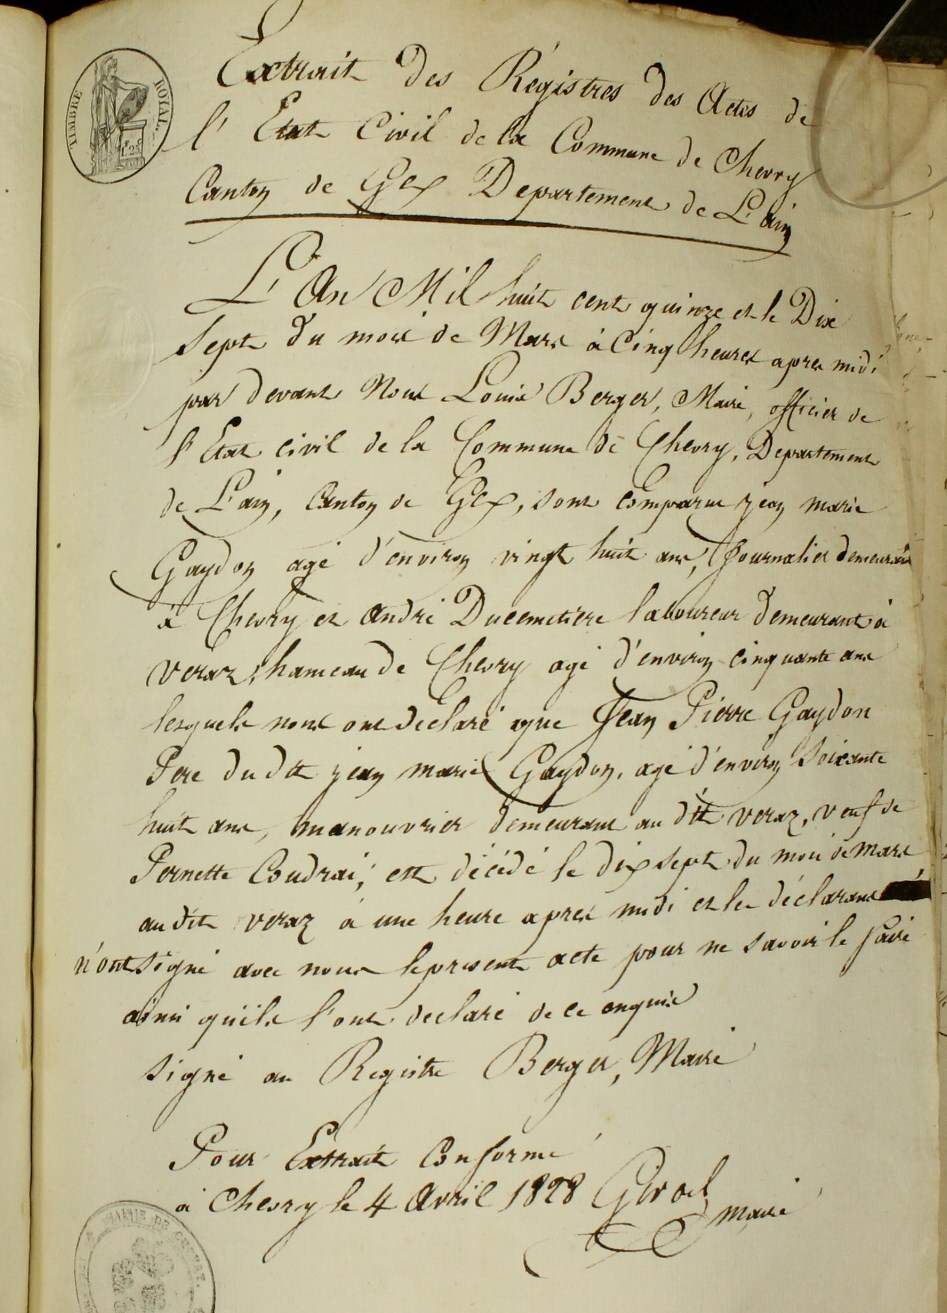 TIMBRE ROYAL
1f 25
Extrait des Régistres des Actes de
l'Etat Civil de la Commune de Chevry
Canton de Gex Departement de L'ain
L'An Mil huit cent quinze et le Dix
Sept du mois de Mars à Cinq heures apres midi
par devant Nous Louis Berger, Maire, officier de
l'Etat civil de la Commune de Chevry, Departement
de L'ain, Canton de Gex, sont comparus jean marie
Gaydon agé d'environ vingt huit ans, Journalier demeurant
à Chevry et André Ducemetiere laboureur demeurant à
veraz, hameau de Chevry agé d'environ cinquante ans
lesquels nous ont déclaré que Jean Pierre Gaydon
Pere du dit jean marie Gaydon, agé d'environ Soixante
huit ans, manouvrier demeurant au dit veraz, veuf de
Pernette Coudrai, est décédé le dix sept du mois de mars
au dit veraz à une heure apres midi et les déclarans
n'ont signé avec nous le present acte pour ne savoir le faire
ainsi qu'ils l'ont declaré de ce enquis
signé au Registre Berger, Maire
Pour Extrait Conforme
à Chevry le 4 Avril 1828 Girod
maire
MAIRIE DE CHEVRY